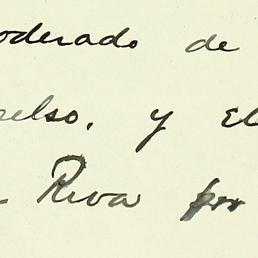 oderado de
relso, y El
Riva por